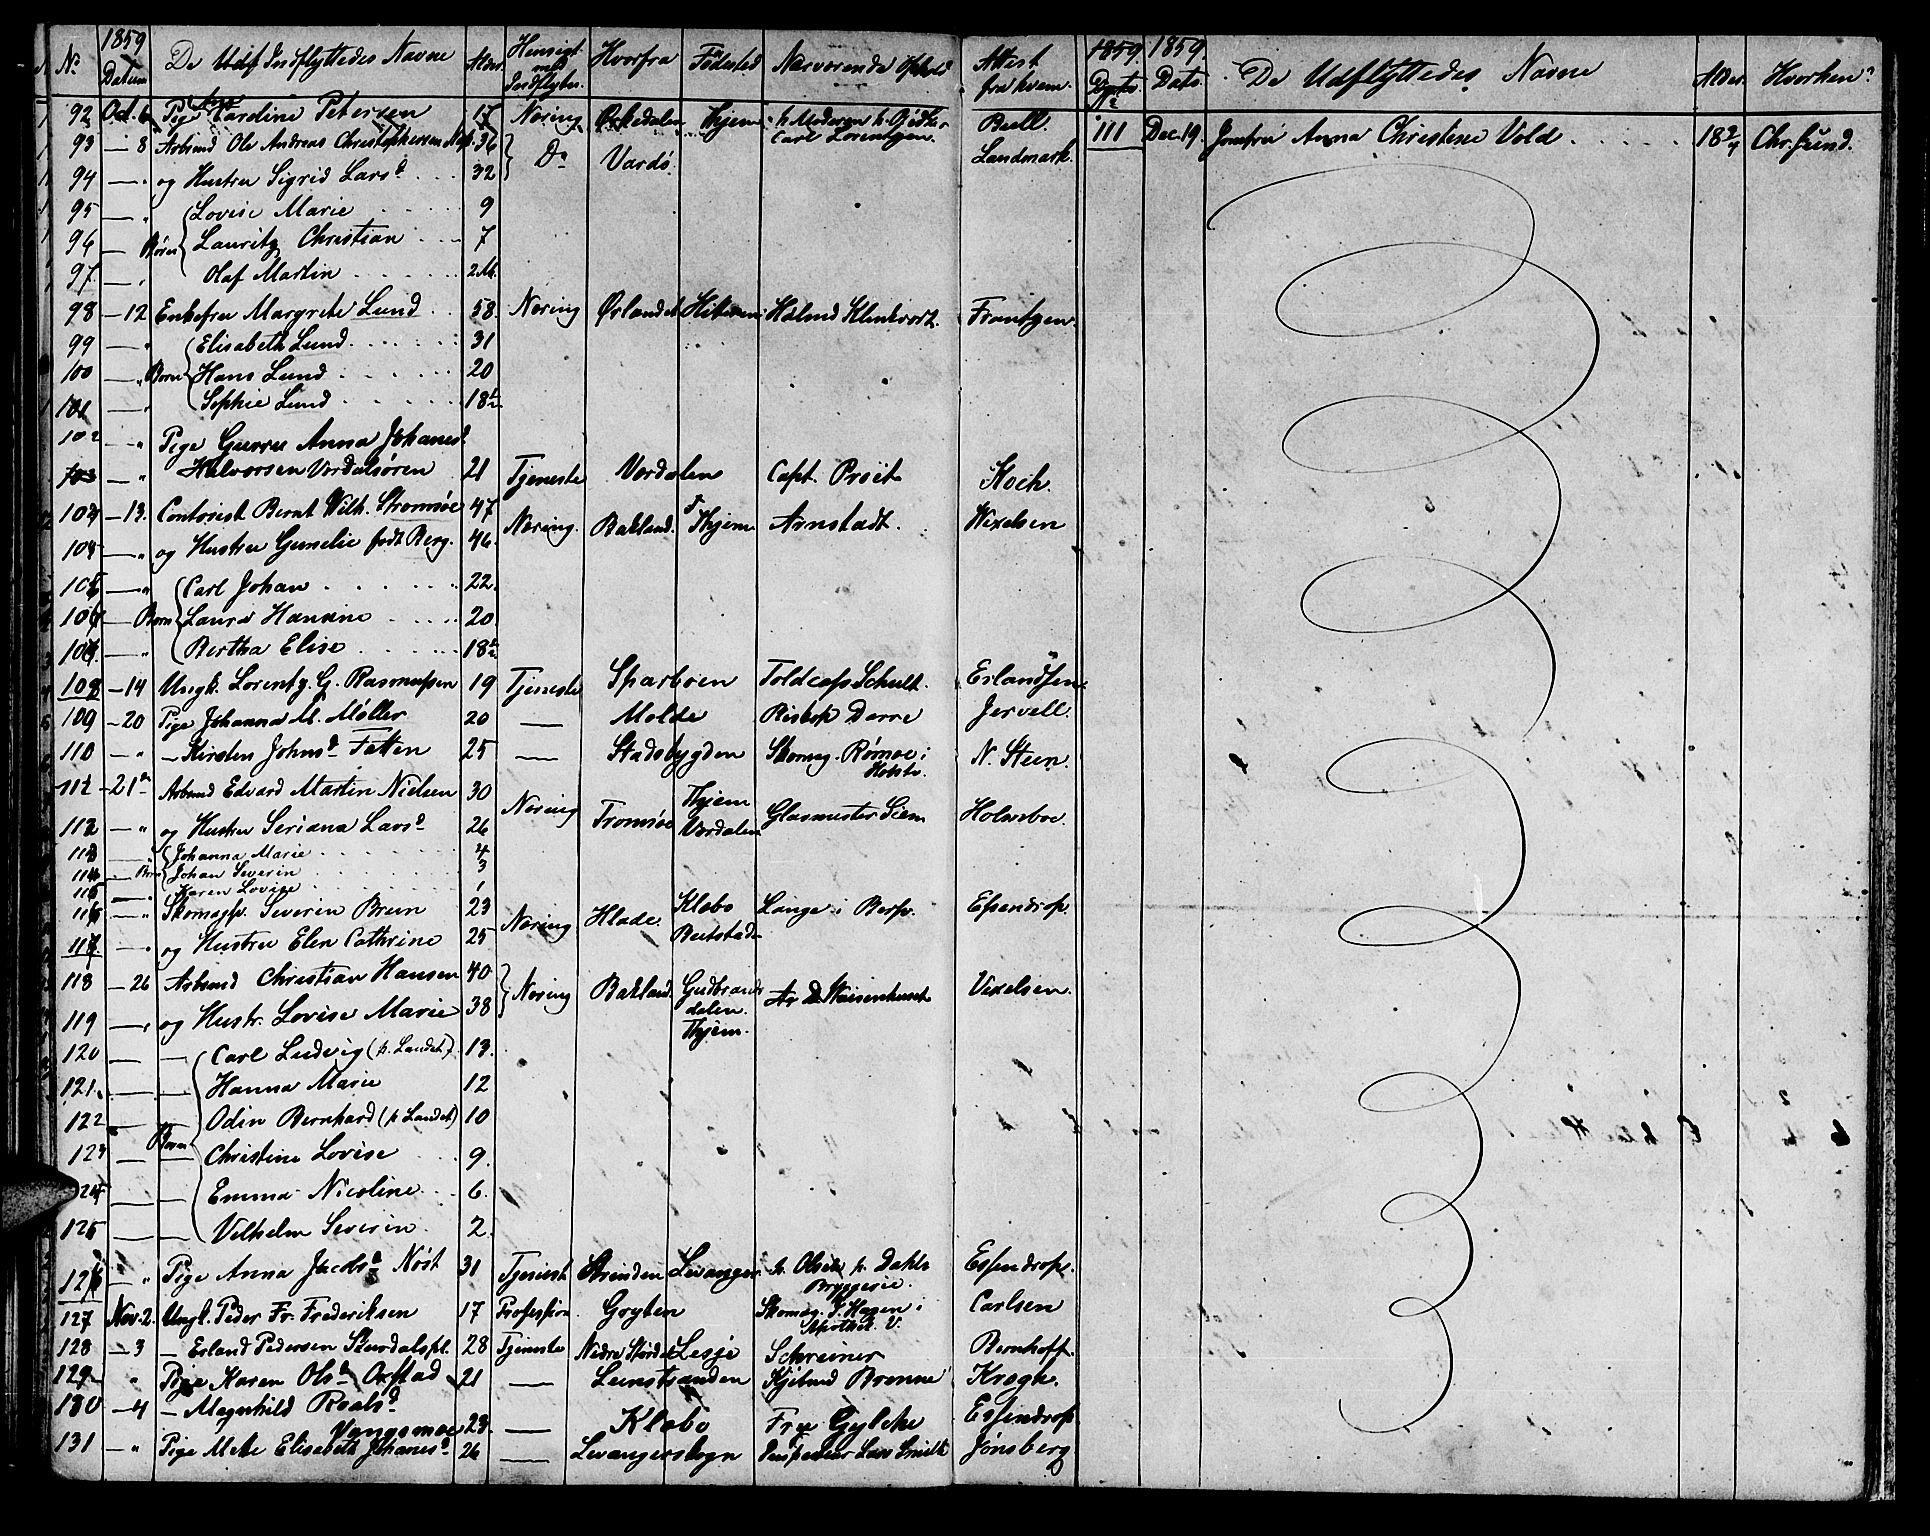 No 1859 Datum De Indflyttedes Navne Alder Hensigt med Indflytn. Hvorfra Fødested Nærværende Ophold Attest fra hvem
92 Oct. 6 Pige Hardine Petersen 17 Næring Orkedalen Thjem h. Moderen h. Bødker Carl Lorentzen Buell.
93 — 8 Arbmd Ole Andreas Christophersen 36 Do Vardö Landmark.
94 — " og Hustru Sigrid Larsd. 32
95 — " Lovise Marie 9
96 — Børn Lauritz Christian 7
97 — " Olaf Martin 2 M.
98 — 12 Enkefru Margrete Lund 58 Næring Ørlandet Hitteren Halmd Klinkvort. Frantzen.
99 — " Elisabeth Lund 31
100 — " Børn Hans Lund 20
101 — " Sophie Lund 18½
102 — " Pige Anna Johansd.
103 — " Halvorsen Værdalsøren 21 Tjeneste Værdalen Capt. Proit Koch.
103 — 13. Contorist Bernt Wilh. Strømsøe 47 Næring. Bakland. Thjem Arnstadt. Wexelsen
104 — " og Hustru Gunelie født Berg. 46.
105 — " Carl Johan 22.
106 — Børn Laura Hansine 20.
107 — " Bertha Elise 18½
108 — 14 Ungk. Lorentz G. Rasmussen 19 Tjeneste Sparboen Toldcass Schult. Erlandsen
109 — 20 Pige Johanna M. Møller 20 — Molde Biskop Darre Jervell.
110 — " — Kirsten Johnsd. Fætten 25 — Stadsbygden Skomag. Rømoe i N. Steen.
111 — 21de Arbmd Edvard Martin Nielsen 30 Næring Tromsöe Thjem Glasmester Siem Holmboe.
112 — " og Hustru Seriana Larsd. 26 Værdalen
113 — " Johanna Marie 4
114 — Børn Johan Severin 3
115 — Karen Lovise 1
116 — " Skomagsv. Severin Bruun 23 Næring Hlade. Klæbo Lange i Bersv. Essendrop.
117 — " og Hustru Elen Cathrine 25 Beitstad
118 — 26 Arbmd Christian Hansen 40 Næring Bakland Gudbrandsdalen. Waisenhuset Vexelsen.
119 — " og Hustr. Lovise Marie 38 Thjem.
120 — — Carl Ludvig (p. Landet) 13.
121. — — Hanna Marie 12
122 — Odin Bernhard (p Landet) 10
123 — Børn Christine Lovise 9.
124 — — Emma Nicoline 6.
125 — — Vilhelm Severin 2.
126 — " Pige Anna Jacobsd. Nøst 31 Tjenest Strinden Levanger h. Olsen p. Dahls Bryggerie. Essendrop.
127 Nov. 2. Ungk. Peder Fr. Frederiksen 17 Profession Gryten Skomag. J. Hagen i Apothek. V. Carlsen
128 — 3 — Erland Pedersen Stuedalspl. 28 Tjeneste Nedre Stördal Lesje Schreiner Bernhoft.
129 " Pige Karen Olsd. Orstad 21 — Leinstranden Kjøbmd Bromme Krogh.
130 — 4 — Magnhild Roaldsd. Vangsmoe 23. — Klæbo Fru Gylche Essendrop.
131 — " Pige Mette Elisabeth Johanesd. 26 — Levangerskogn Inspecteur Lars Smidt Jönsberg
1859 1859 Dato. De Udflyttedes Navne Alder Hvorhen?
111 Dec. 19. Jomfru Anna Christine Vold 18 2/4 Chr. sund.